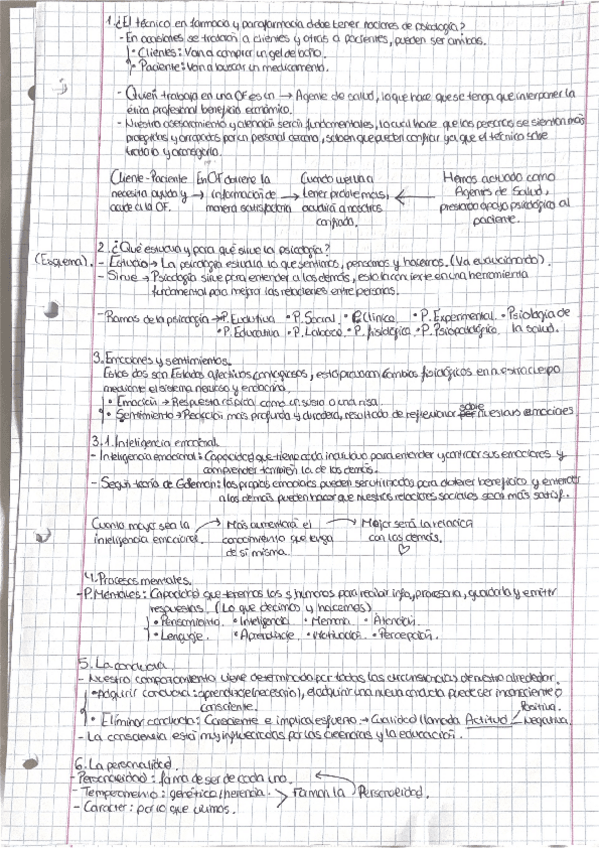 1. ¿El técnico en farmacia y parafarmacia debe tener nociones de psicología?
- En ocasiones se tratarán a clientes y otras a pacientes, pueden ser ambos.
• Clientes: Van a comprar un gel de baño.
• Paciente: Van a buscar un medicamento.
- Quien trabaja en una OF es un → Agente de salud, lo que hace que se tenga que interponer la
ética profesional beneficio económico.
- Nuestro asesoramiento y atención serán fundamentales, lo cual hace que las personas se sientan más
protegidas y arropadas por un personal cercano, saben que pueden confiar ya que el técnico sabe
tratarlo y aconsejarlo.
Cliente-Paciente necesita ayuda y acude a la OF. → En OF darán la información de manera satisfactoria → Cuando vuelva a tener problemas, acudirá a nosotros confiado. ← Hemos actuado como Agentes de Salud, prestando apoyo psicológico al paciente.
2. ¿Qué estudia y para qué sirve la psicología?
(Esquema). - Estudia → La psicología estudia lo que sentimos, pensamos y hacemos. (Va evolucionando).
- Sirve → Psicología sirve para entender a los demás, esto la convierte en una herramienta
fundamental para mejorar las relaciones entre personas.
- Ramas de la psicología → P. Evolutiva • P. Social • P. Clínica • P. Experimental • Psicología de
• P. Educativa • P. Laboral • P. fisiológica • P. Psicopatológica la salud.
3. Emociones y sentimientos.
Estos dos son Estados afectivos contagiosos, estos provocan cambios fisiológicos en nuestro cuerpo
mediante el sistema nervioso y endocrino.
• Emoción → Respuesta rápida como un susto o una risa.
• Sentimiento → Reacción más profunda y duradera, resultado de reflexionar sobre nuestras emociones
3.1. Inteligencia emocional
- Inteligencia emocional: Capacidad que tiene cada individuo para entender y controlar sus emociones y
comprender también la de los demás.
- Según teoría de Goleman: las propias emociones pueden ser utilizadas para obtener beneficio y entender
a los demás pueden hacer que nuestras relaciones sociales sean más satisf.
Cuanto mayor sea la inteligencia emocional. → Más aumentará el conocimiento que tenga de si misma. → Mejor será la relación con los demás. ♡
4. Procesos mentales.
- P. Mentales: Capacidad que tenemos los s. humanos para recibir info, procesarla, guardarla y emitir
respuestas. (Lo que decimos y hacemos)
• Pensamiento. • Inteligencia • Memoria • Atención.
• Lenguaje. • Aprendizaje • Motivación • Percepción.
5. La conducta.
- Nuestro comportamiento viene determinado por todas las circunstancias de nuestro alrededor.
• Adquirir conducta: aprendizaje (necesario), el adquirir una nueva conducta puede ser inconsciente o
consciente. Positiva.
• Eliminar conducta: Consciente e implica esfuerzo → Cualidad llamada Actitud Negativa.
- La consciencia está muy influenciada por las creencias y la educación.
6. La personalidad.
- Personalidad: forma de ser de cada uno.
- Temperamento: genético/herencia. Forman la Personalidad.
- Caracter: por lo que vivimos.